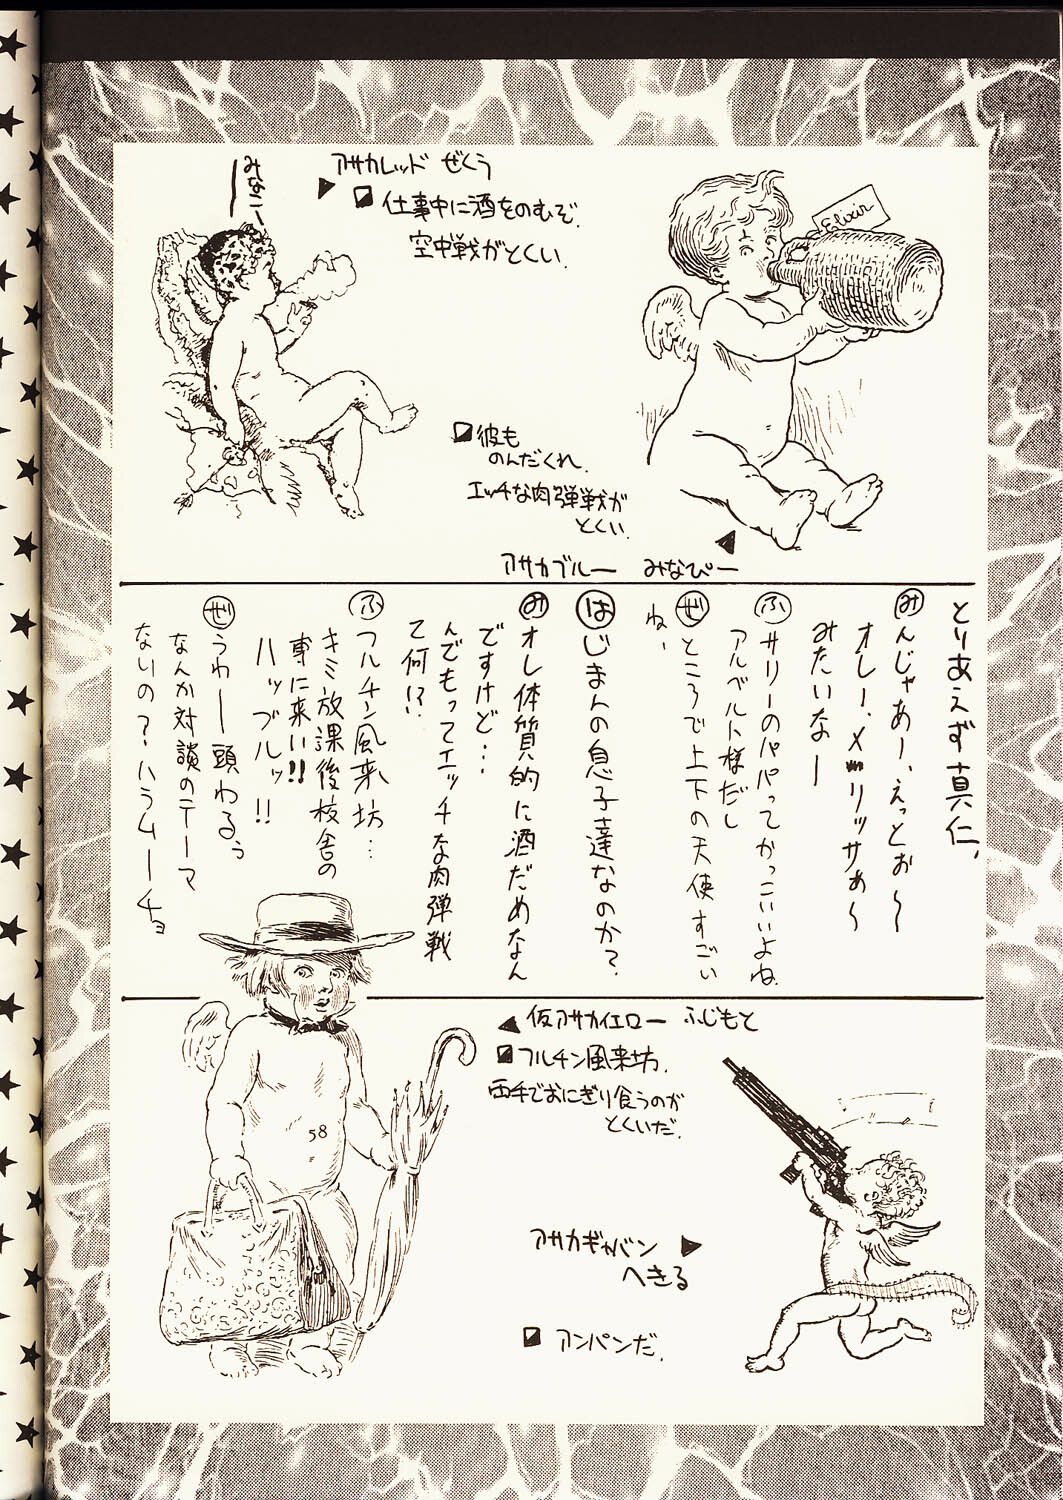 みなこ、
アサカレッド ぜくう
仕事中に酒をのむぞ.
空中戦がとくい.
Elixir
彼も
のんだくれ.
エッチな肉弾戦が
とくい.
アサカブルー みなぴー
とりあえず真仁、
みんじゃあー、えっとぉ〜
オレー、メリッサぁ〜
みたいなー
ふサリーのパパってかっこいいよね.
アルベルト様だし
ぜところで上下の天使すごい
ね、
はじまんの息子達なのか?.
みオレ体質的に酒だめなん
ですけど…
んでもってエッチな肉弾戦
て何!?
ふフルチン風来坊…
キミ放課後校舎の
裏に来い!!
ハッブルッ!!
ぜうわー頭わるぅ
なんか対談のテーマ
ないの?.ハラムーチョ
仮アサカイエロー ふじもと
フルチン風来坊.
両手でおにぎり食うのが
とくいだ.
58
アサカギャバン
へきる
アンパンだ.